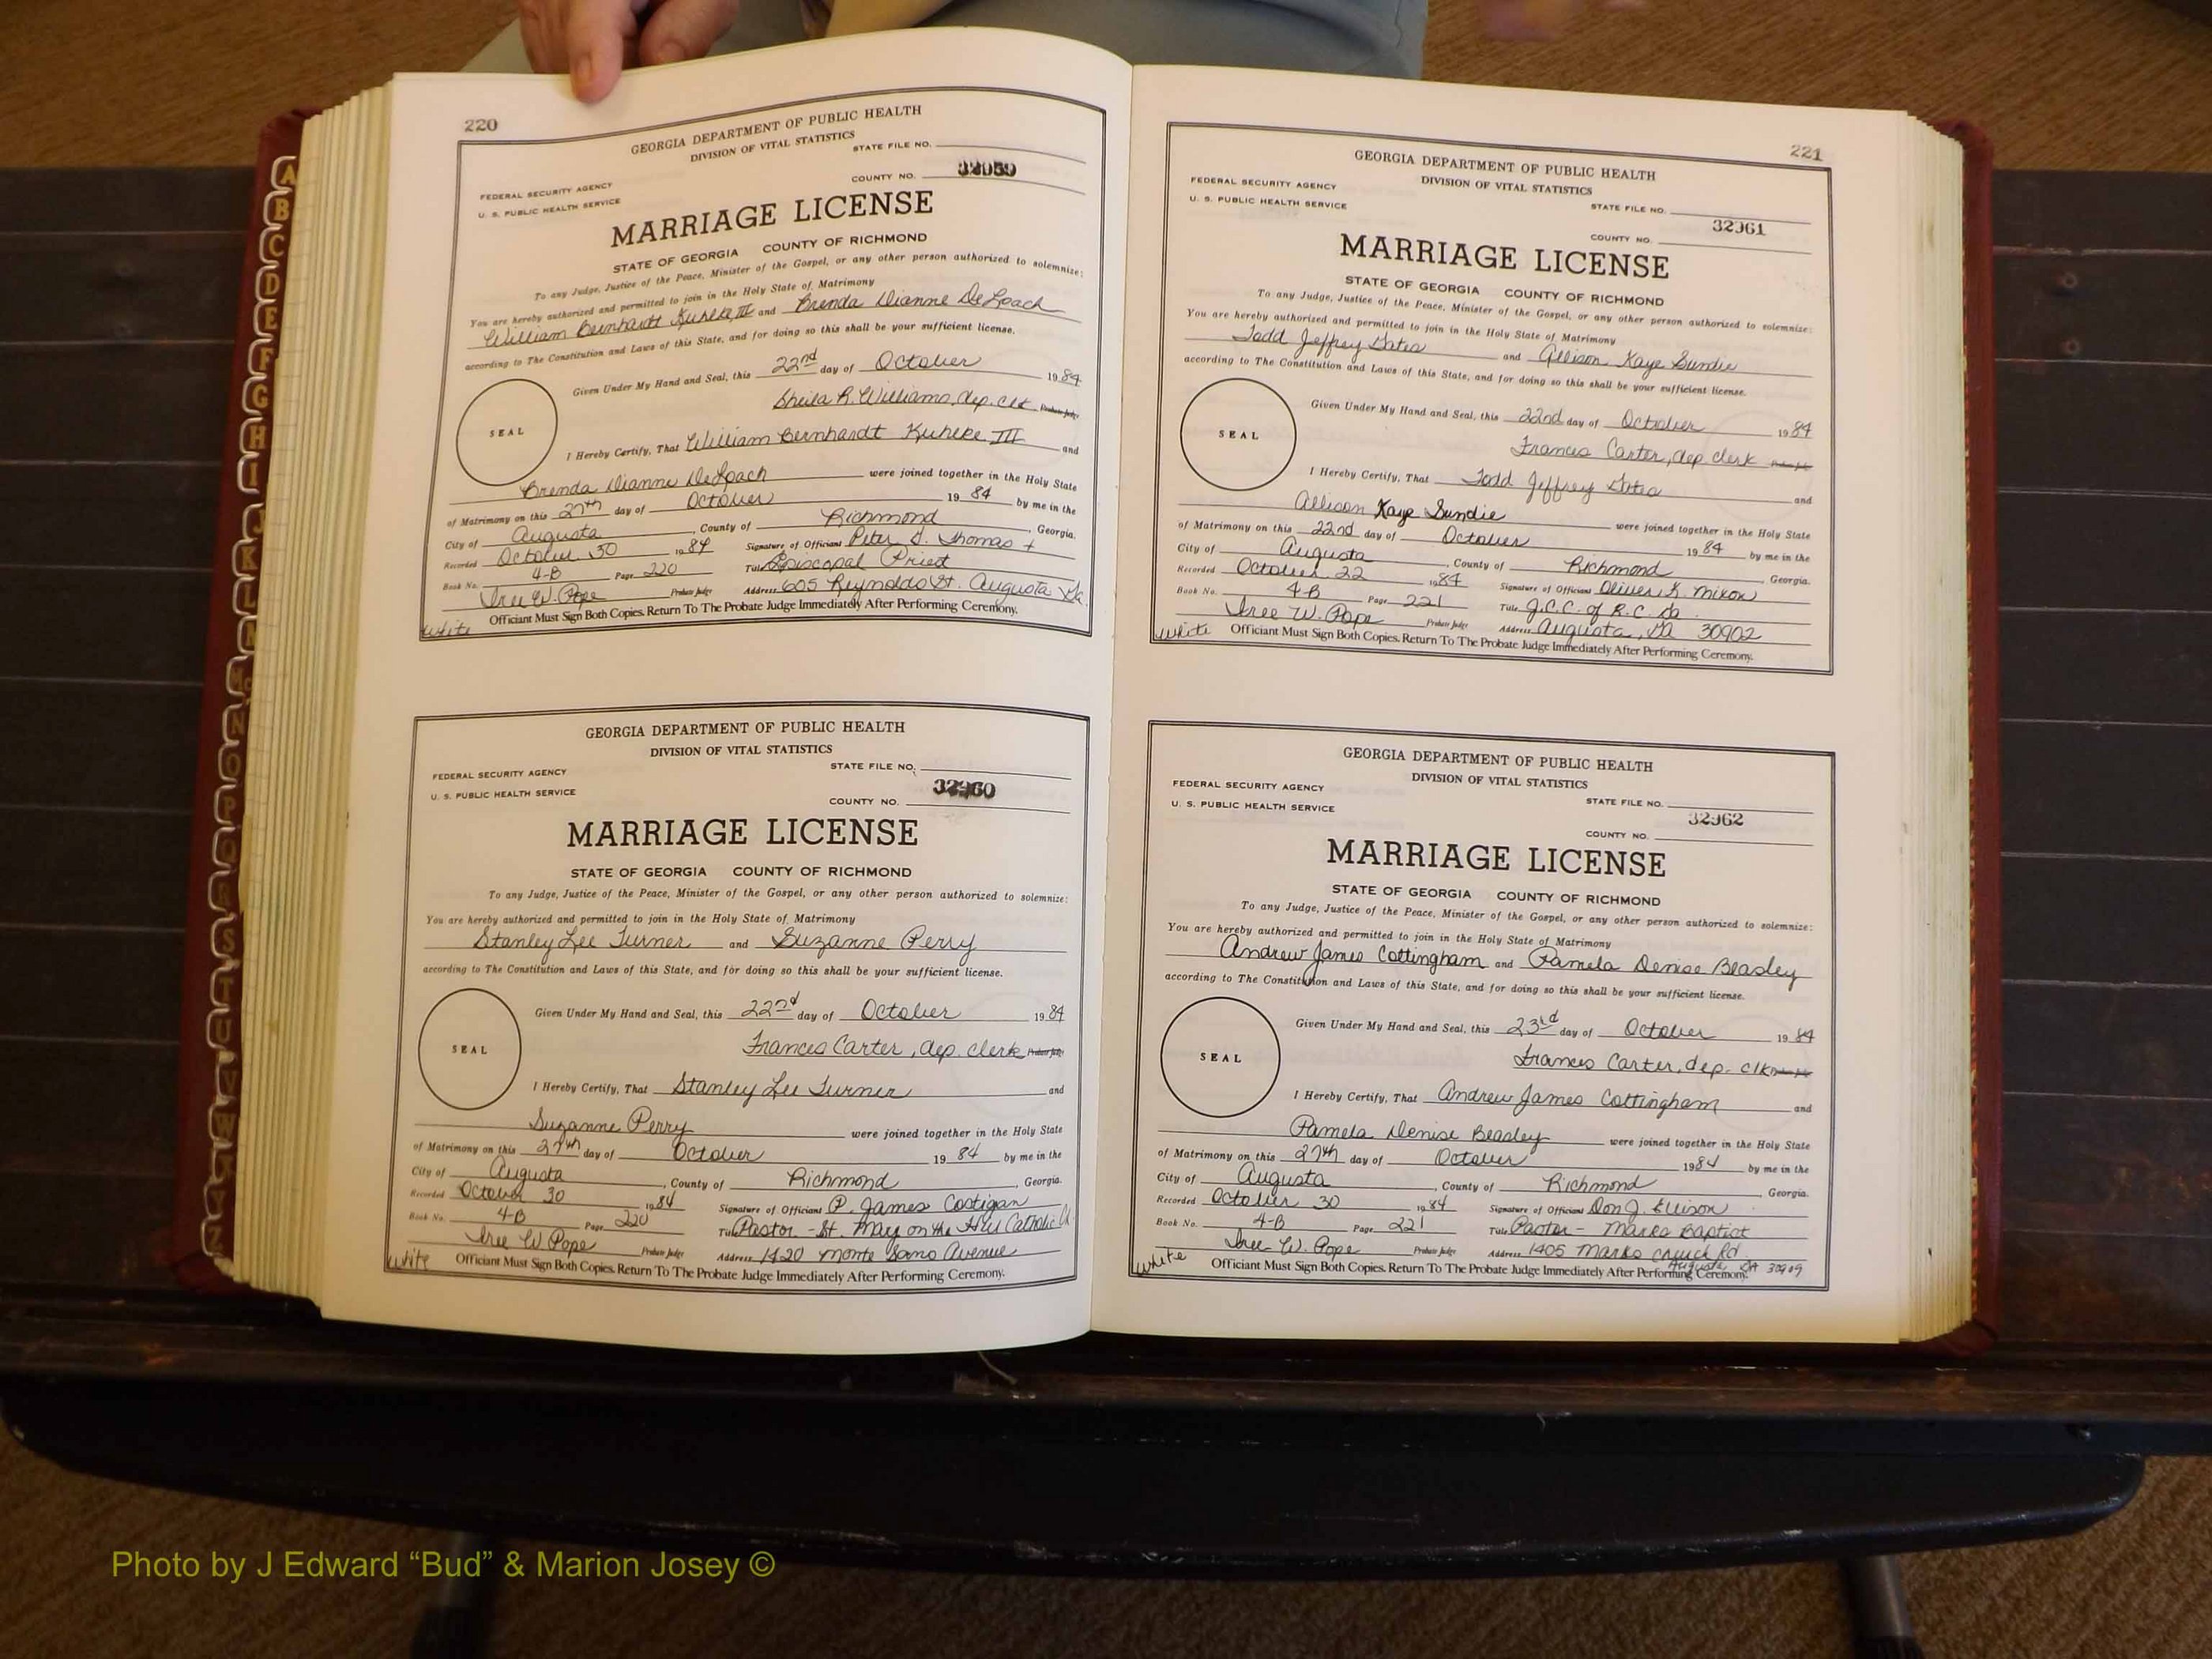 220
GEORGIA DEPARTMENT OF PUBLIC HEALTH
DIVISION OF VITAL STATISTICS
STATE FILE NO.
32959
COUNTY NO.
FEDERAL SECURITY AGENCY
U. S. PUBLIC HEALTH SERVICE
MARRIAGE LICENSE
STATE OF GEORGIA COUNTY OF RICHMOND
To any Judge, Justice of the Peace, Minister of the Gospel, or any other person authorized to solemnize:
You are hereby authorized and permitted to join in the Holy State of Matrimony
William Bernhardt Kuhlke III and Brenda Dianne DeLoach
according to The Constitution and Laws of this State, and for doing so this shall be your sufficient license.
Given Under My Hand and Seal, this 22nd day of October 1984
Sheila R. Williams, dep. clk Probate Judge
SEAL
I Hereby Certify, That William Bernhardt Kuhlke III and
Brenda Dianne DeLoach were joined together in the Holy State
of Matrimony on this 27th day of October 1984 by me in the
City of Augusta, County of Richmond, Georgia.
Recorded October 30 1984 Signature of Officiant Peter G. Thomas +
Book No. 4-B Page 220 Title Episcopal Priest
Iree W. Pope Probate Judge Address 605 Reynolds St. Augusta Ga.
White Officiant Must Sign Both Copies. Return To The Probate Judge Immediately After Performing Ceremony.
GEORGIA DEPARTMENT OF PUBLIC HEALTH
DIVISION OF VITAL STATISTICS
STATE FILE NO.
32960
COUNTY NO.
FEDERAL SECURITY AGENCY
U. S. PUBLIC HEALTH SERVICE
MARRIAGE LICENSE
STATE OF GEORGIA COUNTY OF RICHMOND
To any Judge, Justice of the Peace, Minister of the Gospel, or any other person authorized to solemnize:
You are hereby authorized and permitted to join in the Holy State of Matrimony
Stanley Lee Turner and Suzanne Perry
according to The Constitution and Laws of this State, and for doing so this shall be your sufficient license.
Given Under My Hand and Seal, this 22nd day of October 1984
Frances Carter, dep. clerk Probate Judge
SEAL
I Hereby Certify, That Stanley Lee Turner and
Suzanne Perry were joined together in the Holy State
of Matrimony on this 27th day of October 1984 by me in the
City of Augusta, County of Richmond, Georgia.
Recorded October 30 1984 Signature of Officiant P. James Costigan
Book No. 4-B Page 220 Title Pastor - St. Mary on the Hill Catholic Ch
Iree W. Pope Probate Judge Address 1420 Monte Sano Avenue
White Officiant Must Sign Both Copies. Return To The Probate Judge Immediately After Performing Ceremony.
221
GEORGIA DEPARTMENT OF PUBLIC HEALTH
DIVISION OF VITAL STATISTICS
FEDERAL SECURITY AGENCY
U. S. PUBLIC HEALTH SERVICE
STATE FILE NO.
32961
COUNTY NO.
MARRIAGE LICENSE
STATE OF GEORGIA COUNTY OF RICHMOND
To any Judge, Justice of the Peace, Minister of the Gospel, or any other person authorized to solemnize:
You are hereby authorized and permitted to join in the Holy State of Matrimony
Todd Jeffrey and Allison Kaye Sundie
according to The Constitution and Laws of this State, and for doing so this shall be your sufficient license.
Given Under My Hand and Seal, this 22nd day of October 1984
Frances Carter, dep clerk Probate Judge
SEAL
I Hereby Certify, That Todd Jeffrey and
Allison Kaye Sundie were joined together in the Holy State
of Matrimony on this 22nd day of October 1984 by me in the
City of Augusta, County of Richmond, Georgia.
Recorded October 22 1984 Signature of Officiant Oliver K. Mixon
Book No. 4-B Page 221 Title J.C.C. of R.C. Ga.
Iree W. Pope Probate Judge Address Augusta, GA 30902
White Officiant Must Sign Both Copies. Return To The Probate Judge Immediately After Performing Ceremony.
GEORGIA DEPARTMENT OF PUBLIC HEALTH
DIVISION OF VITAL STATISTICS
FEDERAL SECURITY AGENCY
U. S. PUBLIC HEALTH SERVICE
STATE FILE NO.
32962
COUNTY NO.
MARRIAGE LICENSE
STATE OF GEORGIA COUNTY OF RICHMOND
To any Judge, Justice of the Peace, Minister of the Gospel, or any other person authorized to solemnize:
You are hereby authorized and permitted to join in the Holy State of Matrimony
Andrew James Cottingham and Pamela Denise Beasley
according to The Constitution and Laws of this State, and for doing so this shall be your sufficient license.
Given Under My Hand and Seal, this 23rd day of October 1984
Frances Carter, dep. clk Probate Judge
SEAL
I Hereby Certify, That Andrew James Cottingham and
Pamela Denise Beasley were joined together in the Holy State
of Matrimony on this 27th day of October 1984 by me in the
City of Augusta, County of Richmond, Georgia.
Recorded October 30 1984 Signature of Officiant Don J. Ellison
Book No. 4-B Page 221 Title Pastor - Marks Baptist
Iree W. Pope Probate Judge Address 1405 Marks Church Rd
Augusta GA 30909
White Officiant Must Sign Both Copies. Return To The Probate Judge Immediately After Performing Ceremony.
Photo by J Edward “Bud” & Marion Josey ©